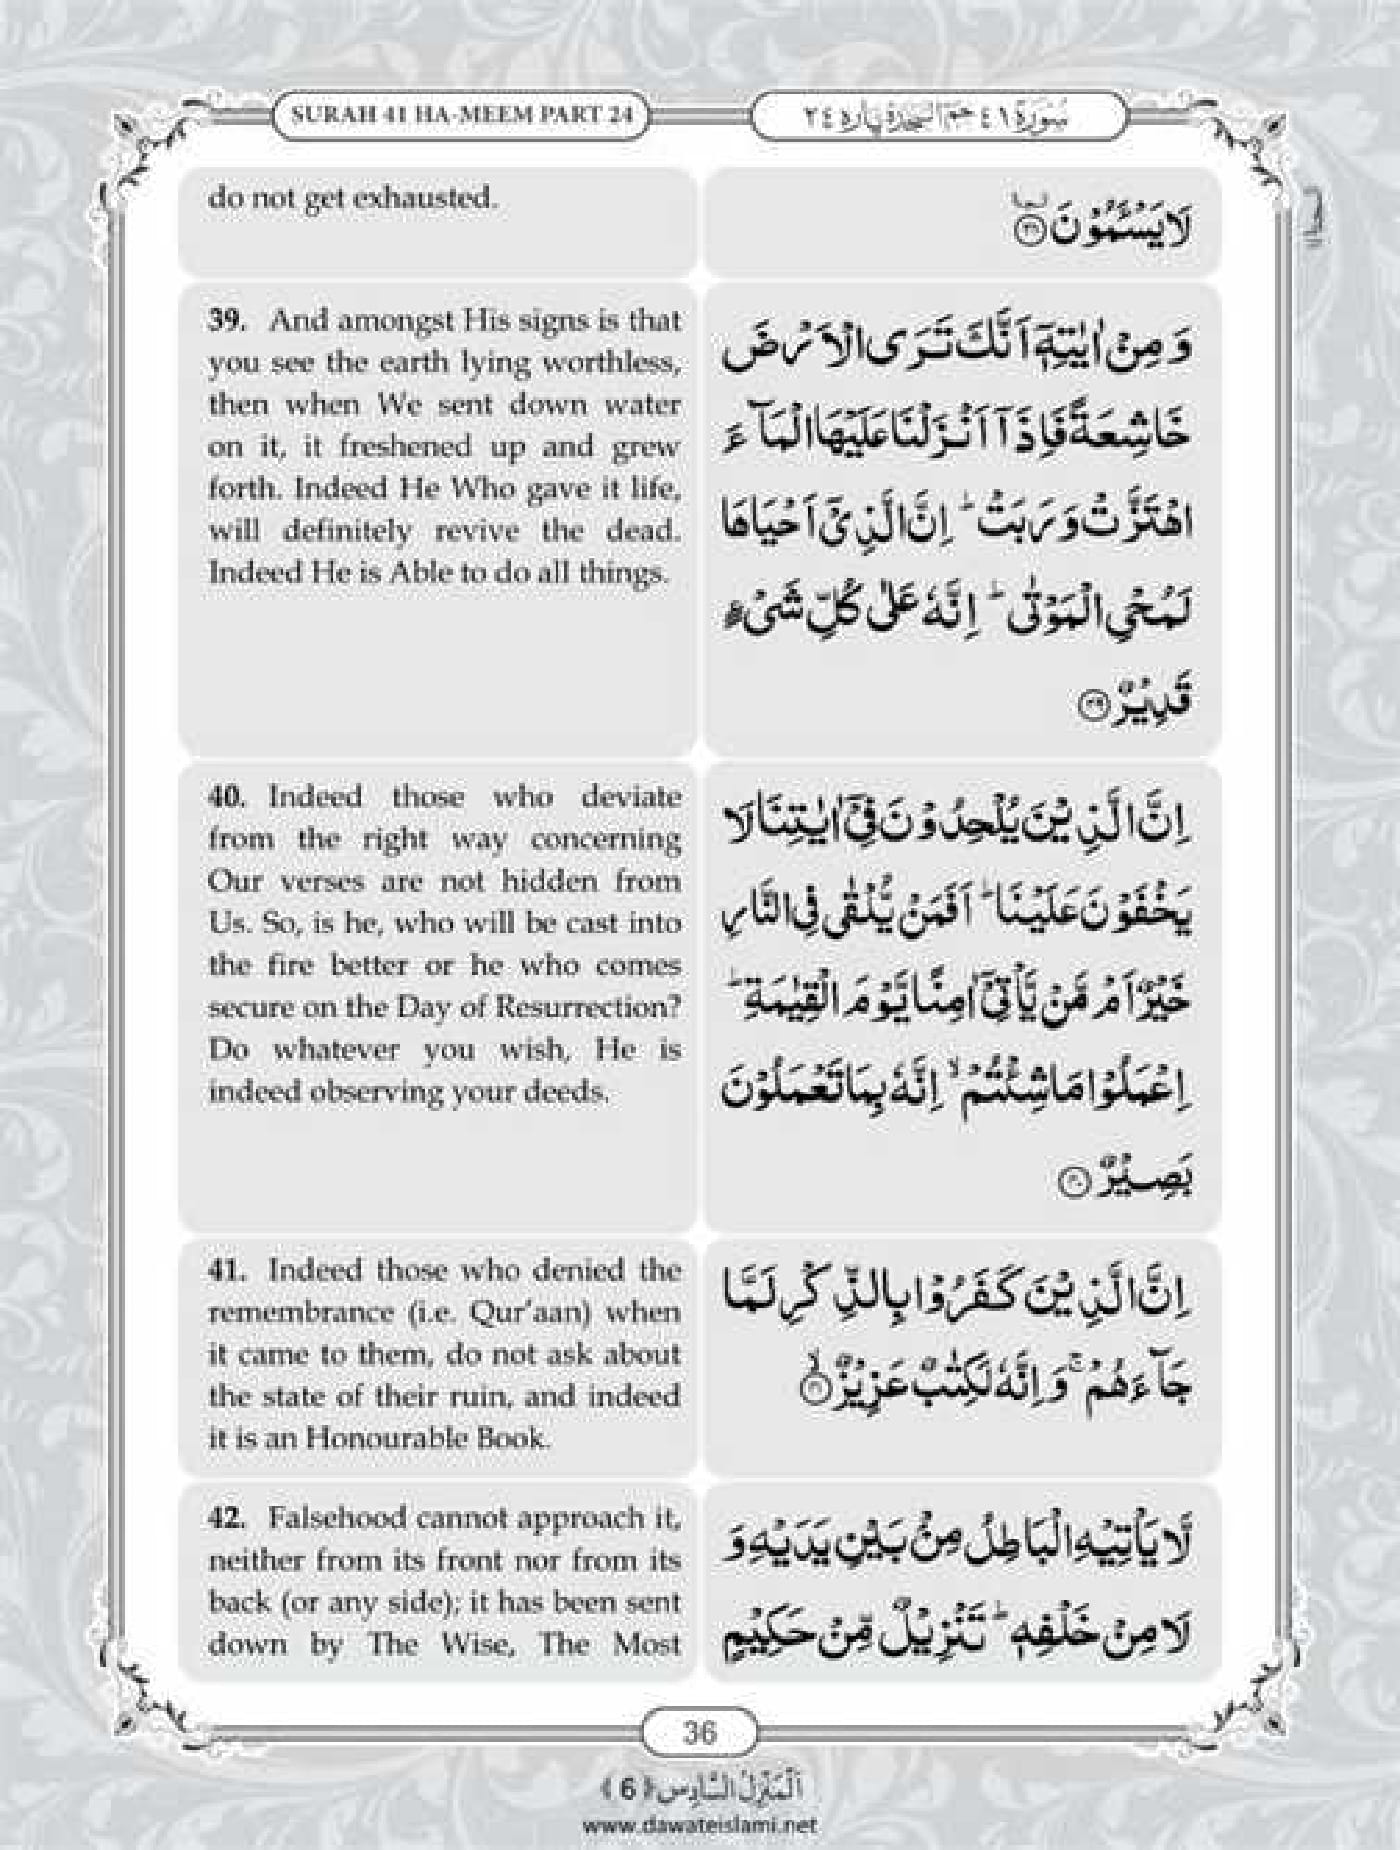 SURAH 41 HA-MEEM PART 24
سُوۡرَة ٤١ حٰمٓ السَّجۡدَة پاره ٢٤
do not get exhausted.
لَا یَسْــٴَـمُوْنَ ۩
السجدة
39. And amongst His signs is that
you see the earth lying worthless,
then when We sent down water
on it, it freshened up and grew
forth. Indeed He Who gave it life,
will definitely revive the dead.
Indeed He is Able to do all things.
وَ مِنْ اٰیٰتِهٖۤ اَنَّكَ تَرَى الْاَرْضَ
خَاشِعَةً فَاِذَاۤ اَنْزَلْنَا عَلَیْهَا الْمَآءَ
اهْتَزَّتْ وَ رَبَتْ ؕ اِنَّ الَّذِیْۤ اَحْیَاهَا
لَمُحْیِ الْمَوْتٰى ؕ اِنَّهٗ عَلٰى كُلِّ شَیْءٍ
قَدِیْرٌ ﴿۳۹﴾
40. Indeed those who deviate
from the right way concerning
Our verses are not hidden from
Us. So, is he, who will be cast into
the fire better or he who comes
secure on the Day of Resurrection?
Do whatever you wish, He is
indeed observing your deeds.
اِنَّ الَّذِیْنَ یُلْحِدُوْنَ فِیْۤ اٰیٰتِنَا لَا
یَخْفَوْنَ عَلَیْنَا ؕ اَفَمَنْ یُّلْقٰى فِی النَّارِ
خَیْرٌ اَمْ مَّنْ یَّاْتِیْۤ اٰمِنًا یَّوْمَ الْقِیٰمَةِ ؕ
اِعْمَلُوْا مَا شِئْتُمْ ۙ اِنَّهٗ بِمَا تَعْمَلُوْنَ
بَصِیْرٌ ﴿۴۰﴾
41. Indeed those who denied the
remembrance (i.e. Qur'aan) when
it came to them, do not ask about
the state of their ruin, and indeed
it is an Honourable Book.
اِنَّ الَّذِیْنَ كَفَرُوْا بِالذِّكْرِ لَمَّا
جَآءَهُمْ ۚ وَ اِنَّهٗ لَكِتٰبٌ عَزِیْزٌ ﴿ۙ۴۱﴾
42. Falsehood cannot approach it,
neither from its front nor from its
back (or any side); it has been sent
down by The Wise, The Most
لَّا یَاْتِیْهِ الْبَاطِلُ مِنْۢ بَیْنِ یَدَیْهِ وَ
لَا مِنْ خَلْفِهٖ ؕ تَنْزِیْلٌ مِّنْ حَكِیْمٍ
36
اَلۡمَنۡزِلُ السَّادِس ﴿6﴾
www.dawateislami.net